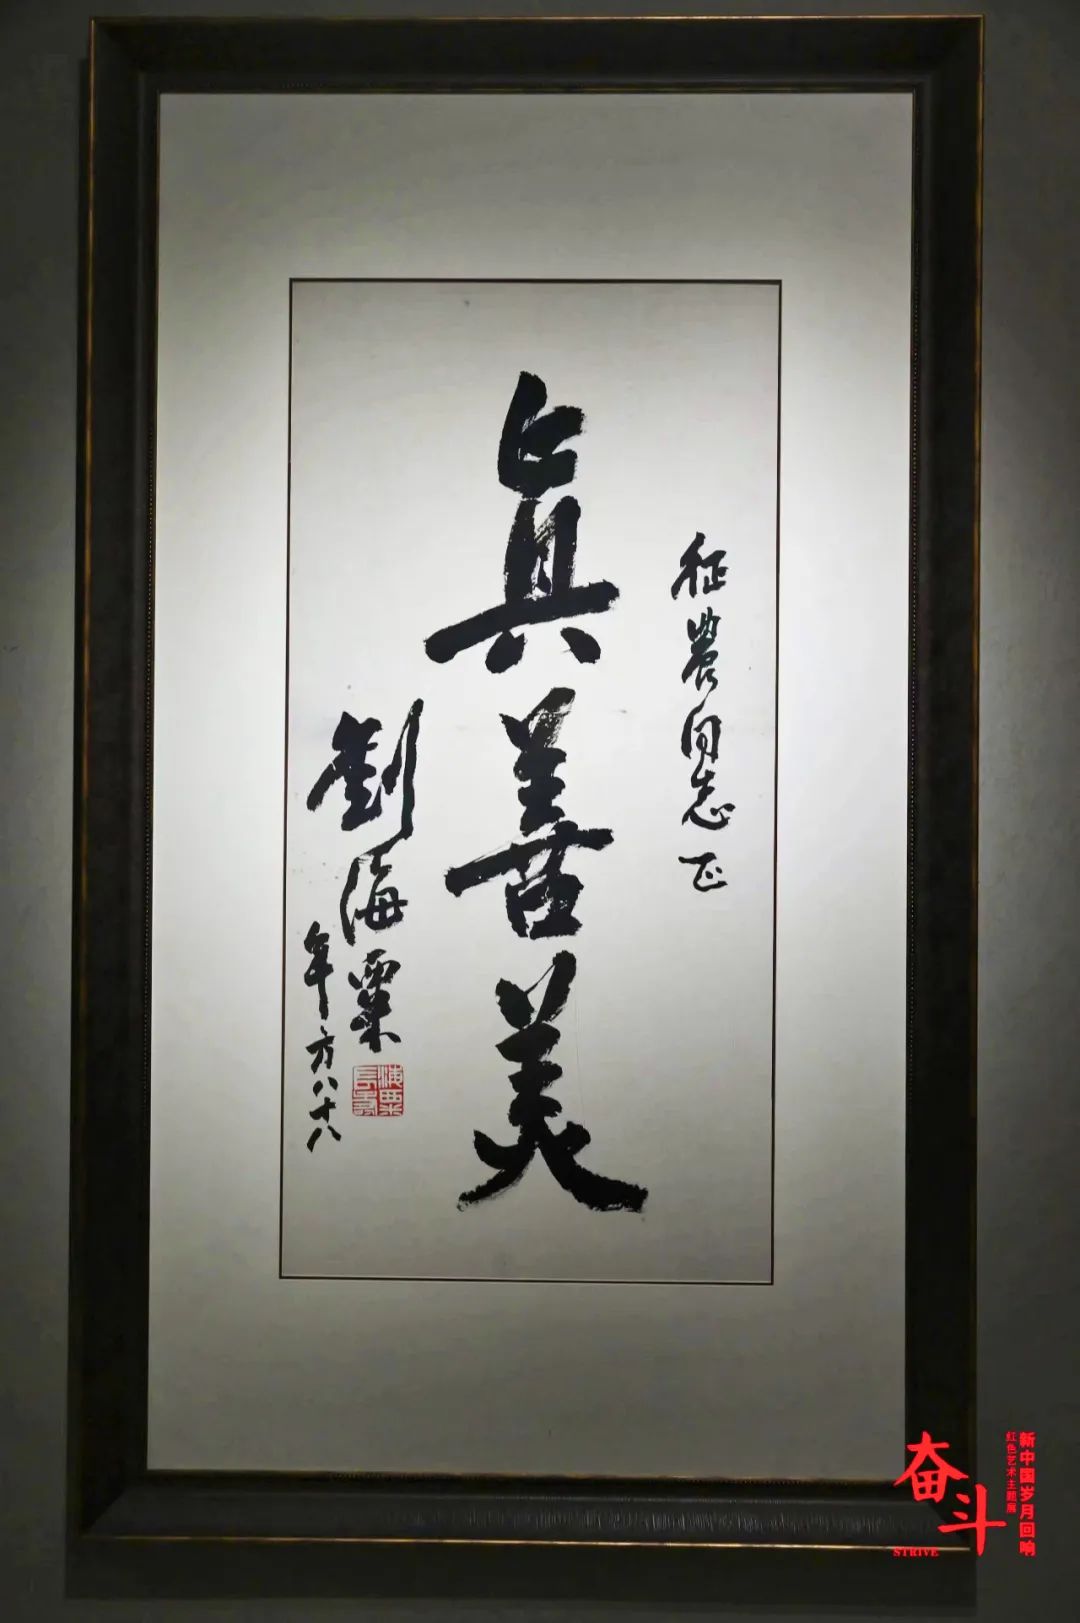 征農同志正
真善美
劉海粟
年方八十八
海粟長壽
奋斗
STRIVE
新中国岁月回响
红色艺术主题展